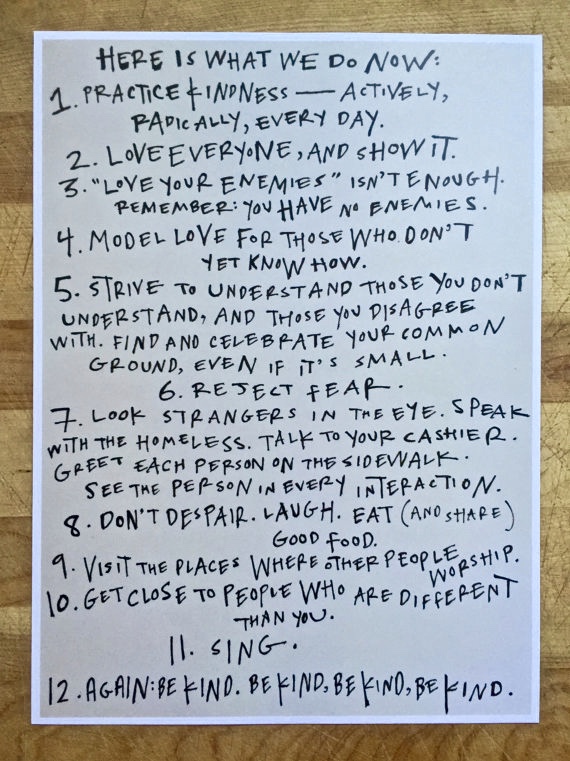 HERE IS WHAT WE DO NOW:
1. PRACTICE KINDNESS — ACTIVELY,
RADICALLY, EVERY DAY.
2. LOVE EVERYONE, AND SHOW IT.
3. "LOVE YOUR ENEMIES" ISN'T ENOUGH.
REMEMBER: YOU HAVE NO ENEMIES.
4. MODEL LOVE FOR THOSE WHO DON'T
YET KNOW HOW.
5. STRIVE TO UNDERSTAND THOSE YOU DON'T
UNDERSTAND, AND THOSE YOU DISAGREE
WITH. FIND AND CELEBRATE YOUR COMMON
GROUND, EVEN IF IT'S SMALL.
6. REJECT FEAR.
7. LOOK STRANGERS IN THE EYE. SPEAK
WITH THE HOMELESS. TALK TO YOUR CASHIER.
GREET EACH PERSON ON THE SIDEWALK.
SEE THE PERSON IN EVERY INTERACTION.
8. DON'T DESPAIR. LAUGH. EAT (AND SHARE)
GOOD FOOD.
9. VISIT THE PLACES WHERE OTHER PEOPLE
WORSHIP.
10. GET CLOSE TO PEOPLE WHO ARE DIFFERENT
THAN YOU.
11. SING.
12. AGAIN: BE KIND. BE KIND, BE KIND, BE KIND.